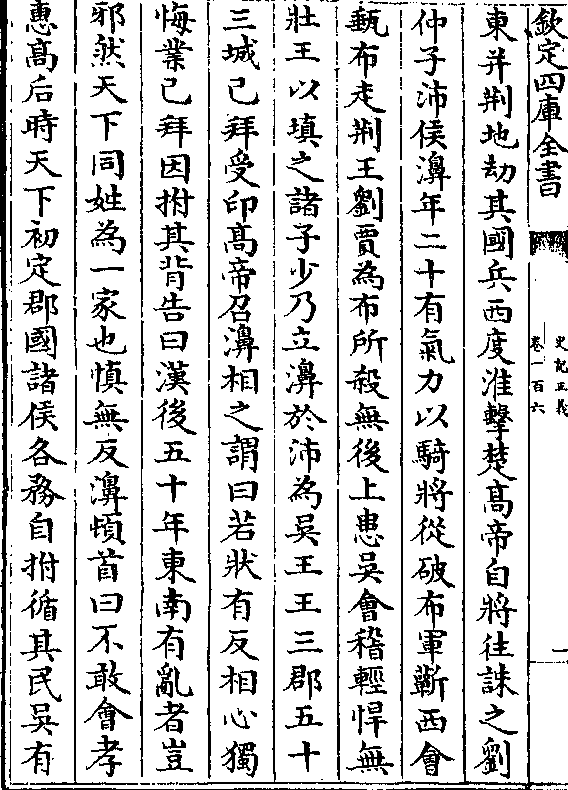 欽定四庫全書
史記正義
卷一百六
一
東并荆地劫其國兵西度淮擊楚髙帝自將往誅之劉
仲子沛侯濞年二十有氣力以騎將從破布軍蘄西會
甀布走荆王劉賈為布所殺無後上患吳會稽輕悍無
壯王以填之諸子少乃立濞於沛為吳王王三郡五十
三城已拜受印髙帝召濞相之謂曰若狀有反相心獨
悔業已拜因拊其背告曰漢後五十年東南有亂者豈
邪然天下同姓為一家也慎無反濞頓首曰不敢會孝
惠髙后時天下初定郡國諸侯各務自拊循其民吳有